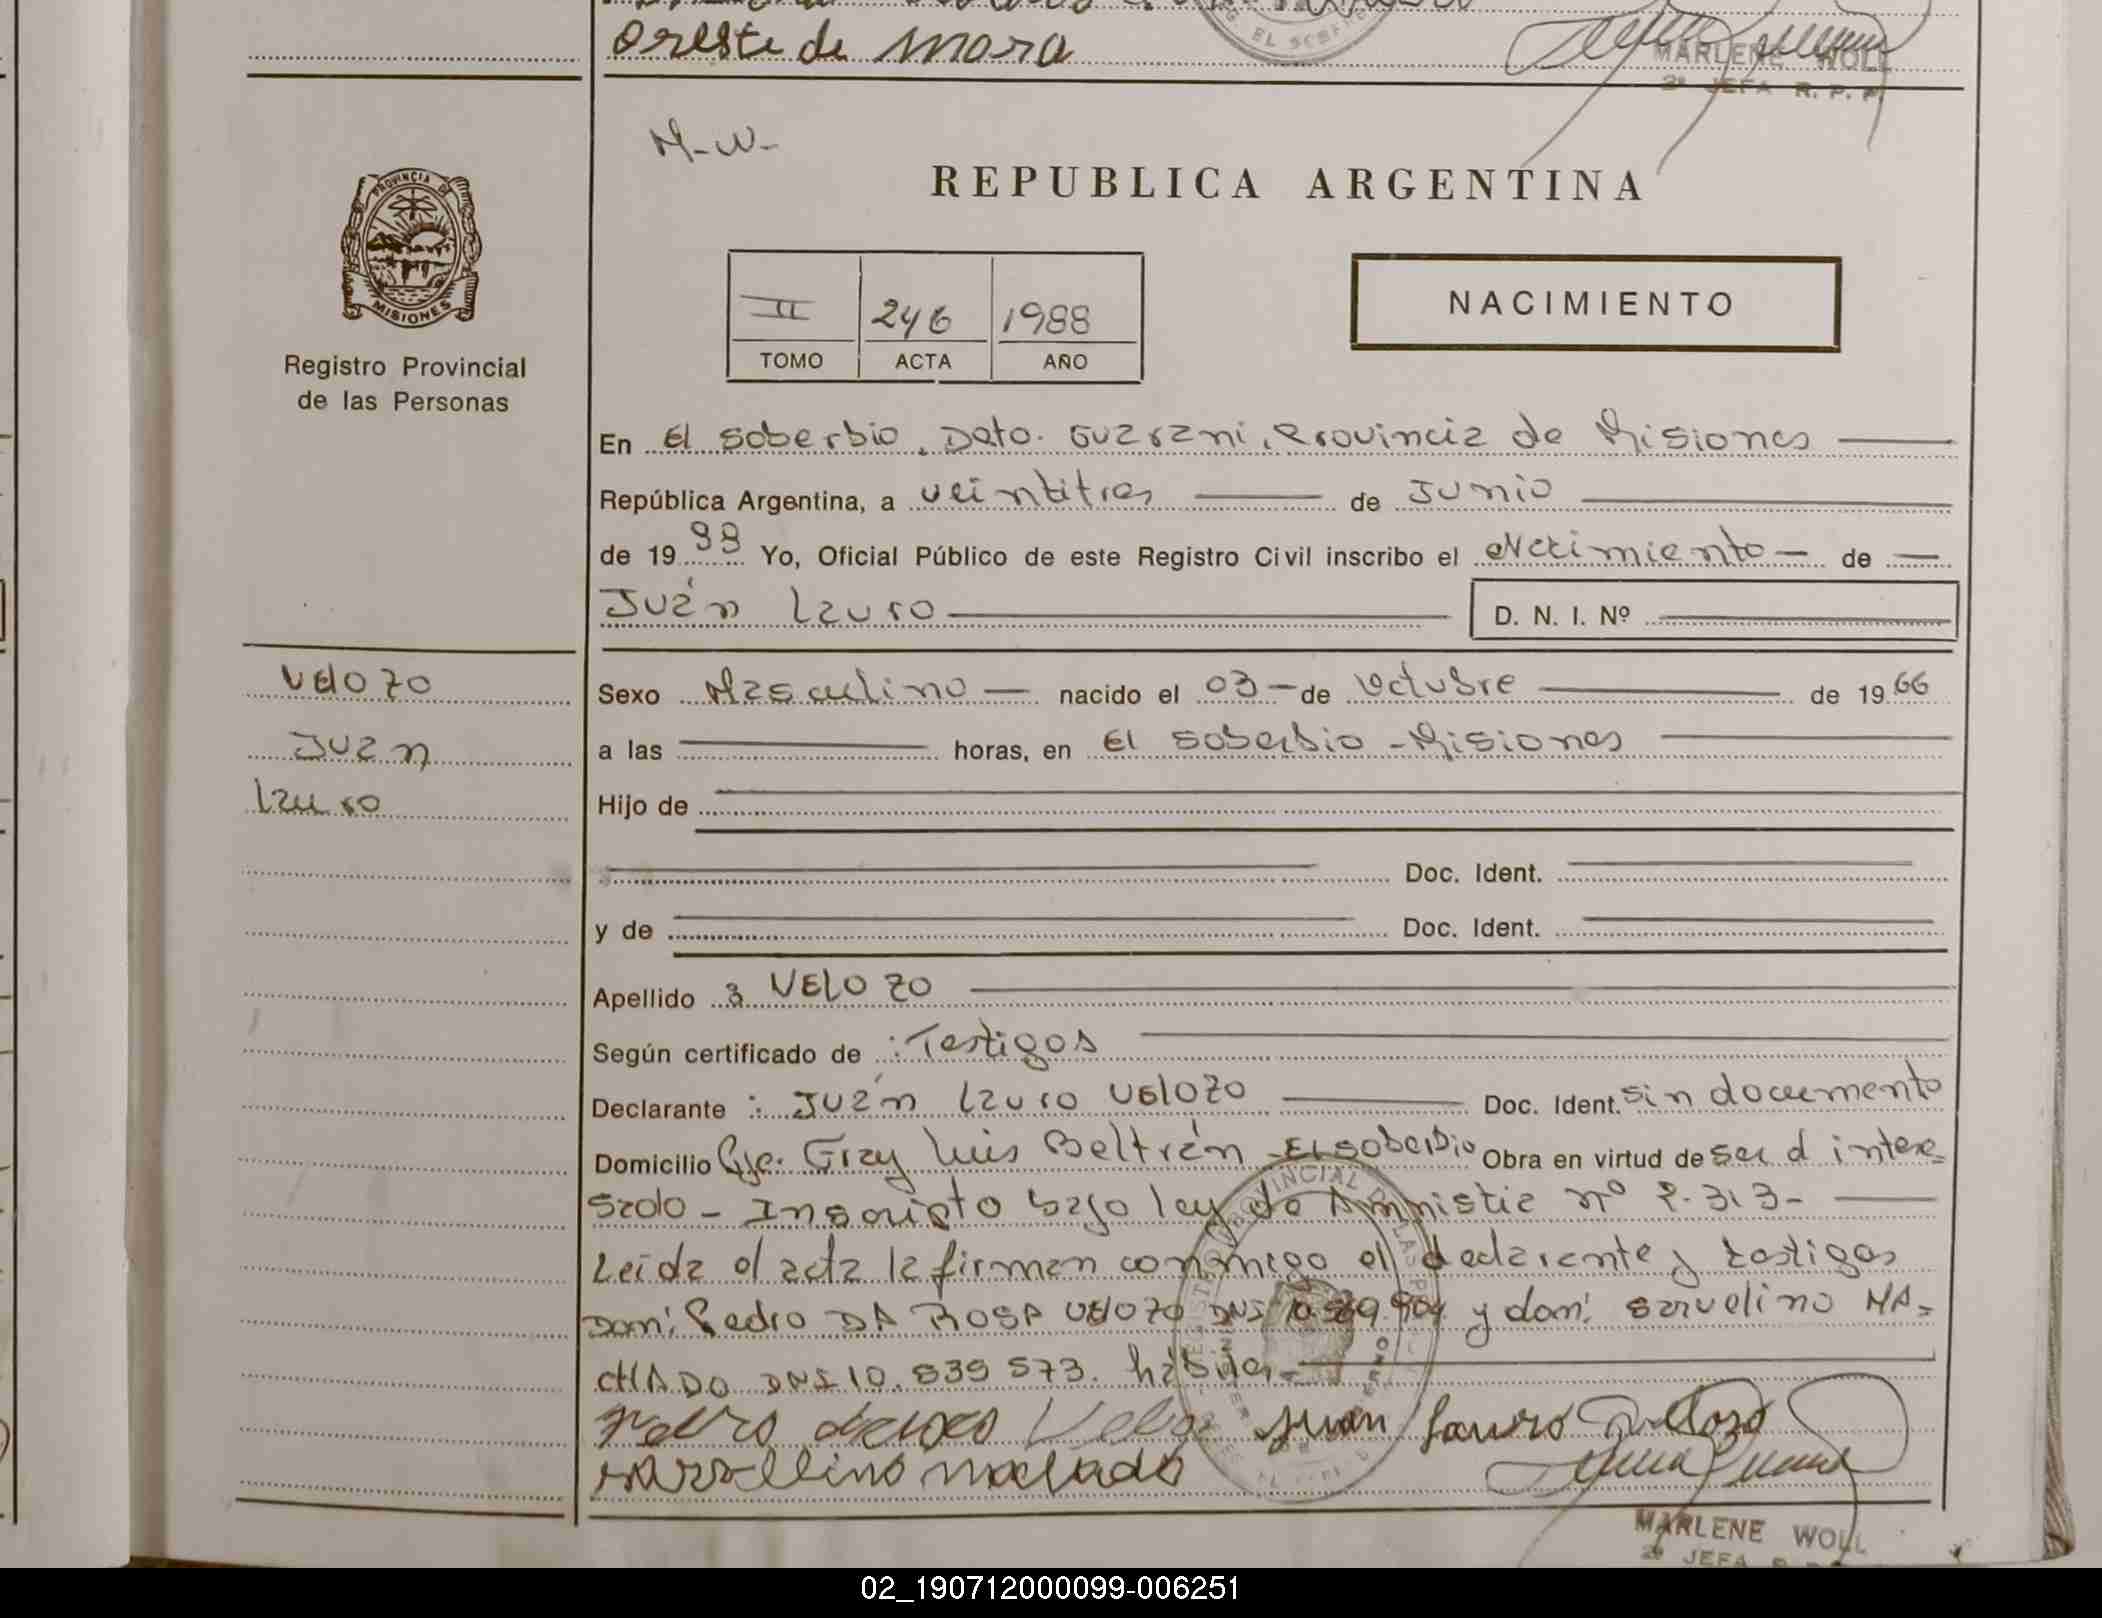 Oreste de Mora
MARLENE WOLL
2ª JEFA R. P. P.
M-W-
REPUBLICA ARGENTINA
PROVINCIA DE
MISIONES
Registro Provincial
de las Personas
II 246 1988
TOMO ACTA AÑO
NACIMIENTO
En El Soberbio, Dpto. Guarani, Provincia de Misiones
República Argentina, a veintitres de Junio
de 19 88 Yo, Oficial Público de este Registro Civil inscribo el Nacimiento de
Juán Lauro D. N. I. Nº
VELOZO
Juan
Lauro
Sexo Masculino nacido el 03 de Octubre de 19 66
a las horas, en El Soberbio - Misiones
Hijo de
Doc. Ident.
y de Doc. Ident.
Apellido : VELOZO
Según certificado de : Testigos
Declarante : Juán Lauro VELOZO Doc. Ident. sin documento
Domicilio Pje. Fray Luis Beltrán - El Soberbio Obra en virtud de ser el intere=
sado - Inscripto bajo ley de Amnistia nº 2.313-
Leida el acta la firman conmigo el declarante y testigos
Dom: Pedro DA ROSA VELOZO DNI y dom: Sarvelino MA=
CHADO DNI 10.839 573. hábiles-
Juan Lauro Vellozo
Sarvellino machado
MARLENE WOLL
2ª JEFA R.P.P.
02_190712000099-006251